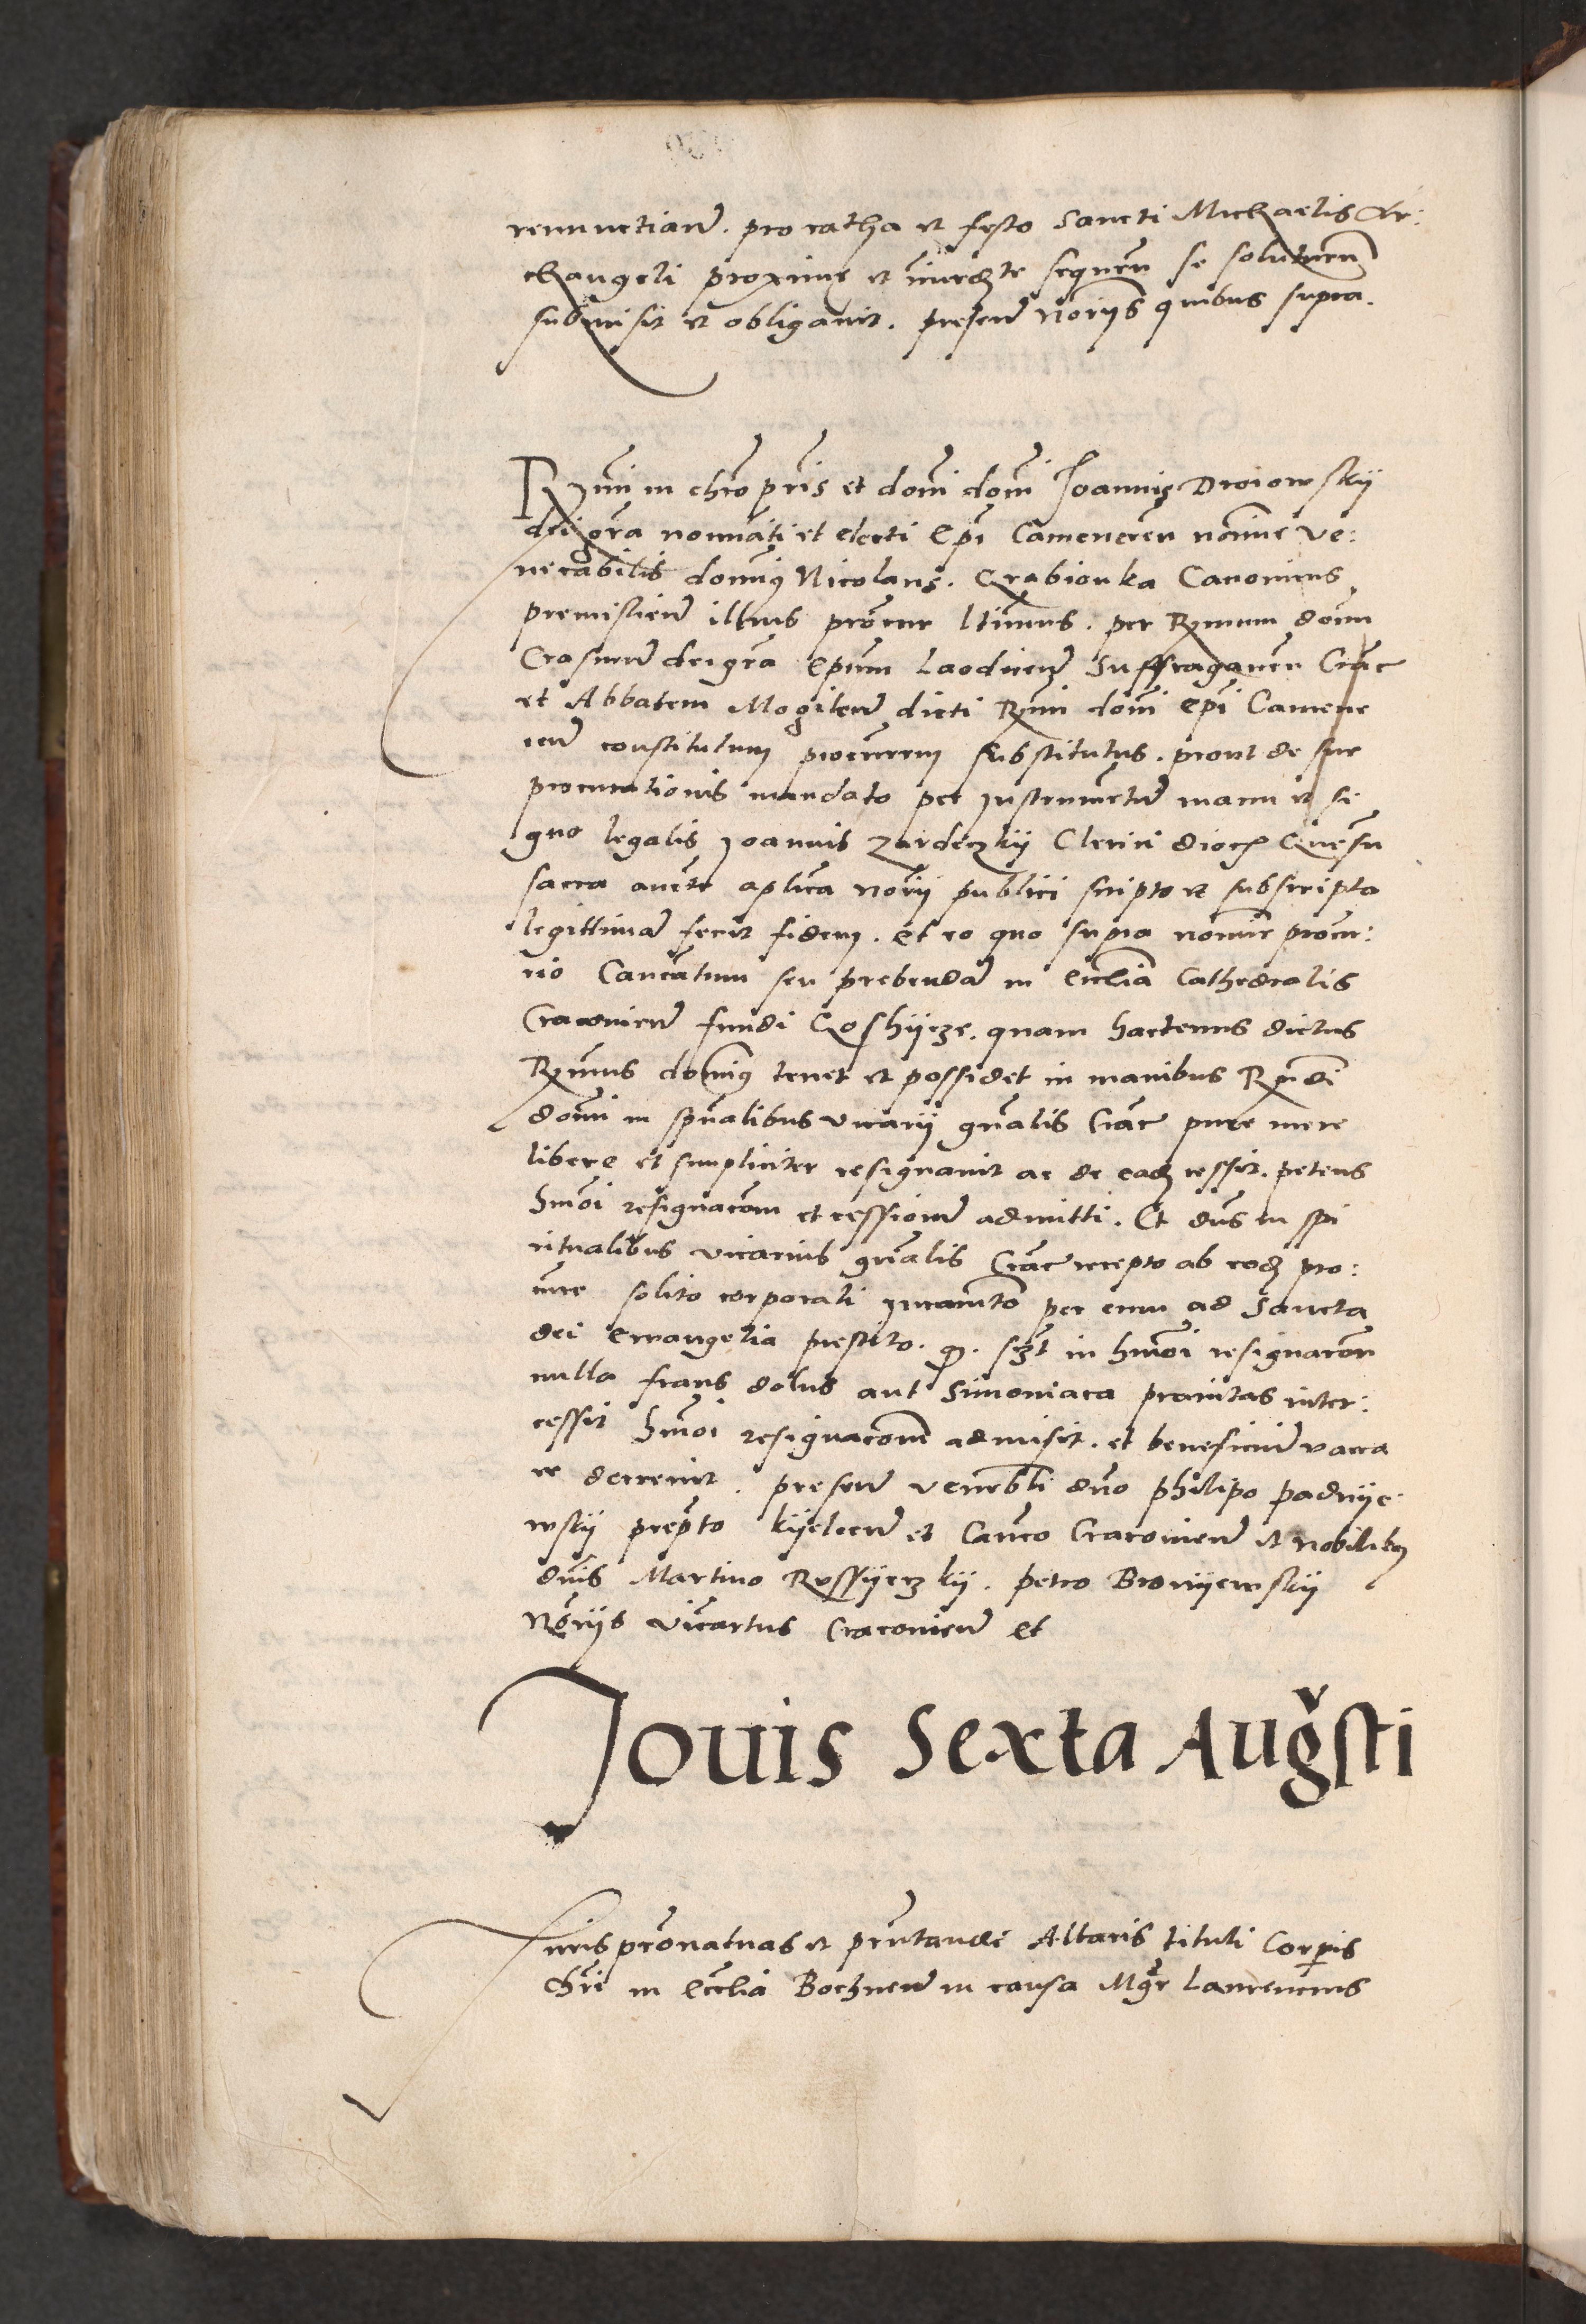 renunctiaɳ. pro ratha et festo Sancti Michaelis Ar:
changeli proxime et imedte sequeñ se soluturum
submisit et obligauit. preseñ Noriis quibus supra.
Rmi in chro pris et domi domi Joannis Droiowsky
dei gra nominati et electi Epi Camenecen nomine ve:
nerabilis dominus Nicolaus. Grabionka Canonicus
premislien illius procur ltimus. per Rmum domi
Erasmu dei gra Epum Laodicen Suffraganeu Crac
et Abbatem Mogilen dicti Rmi domi epi Camene
cen constitutum procurem substitutus. prout de sue
procurationis mandato per Instrumetu manu et si
gno legalis Joannis Zardeczky Clerici dioc Gnesn
sacra aucte aplica Norii publici scripto et subscripto
legittima fecit fidem. et eo quo supra nomine procur:
rio Canatum seu prebenda in Ecclia Cathedralis
Cracouien fundi Coshycze. quam hactenus dictus
Rmus dominus tenet et possidet in manibus Rndi
domi in spualibus vicarii gnalis Crac pure mere
libere et simpliciter resignauit ac de eadem cessit. petens
hmoi resignacom et cessione admitti. Et dns in spi
ritualibus vicarius gnalis Crac recepto ab eodem pro:
cure solito corporali Juramto per eum ad Sancta
dei Ewangelia prestito. q. in hmoi resignacom
nulla fraus dolus aut Simoniaca prauitas inter:
cessit hmoi resignacom admisit. et beneficium vaca
re decreuit. presen venebli dno philipo padnye
wsky prepto kyelcen et Canco Cracouien et nobilibus
dnis Martino Russyeczky. petro Bronyewsky
Noriis Cracouien et
Jouis Sexta Augsti
Juris pronatuas et pntandi Altaris tituli Corpis
Chri in Ecclia Bochnen in causa Mgr Laurencius